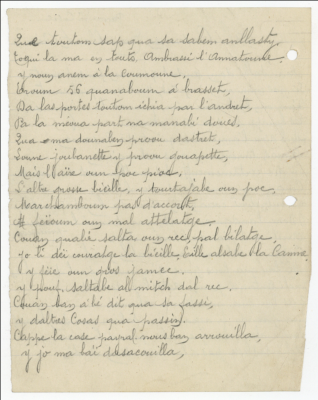 Que toutom sap qua sa sabem anllasty
toqui la ma en touto, Ambrassi l'Annatouno,
y nous anem à la Coumoune,
Eroum 56 quanaboum à brasset,
Da las portes toutom ichia par l'andret,
Da la meoua part ma manabi doues,
Qua ma dounaben proou dastret,
Joune loubanette y proou gouapette,
Mais l'aïre oun poc pioc
L'altre grosse bieille, y tmurtajabe oun poc,
Marchamboum pas d'accort,
feïoum oun mal attelatge
Couan qualié salta oun rec, pal bilatge,
Jo li dei courasge la bieille, bille alsabe la Camme
y féie oun oros jamec.
y pouf saltabe al mitch dal rec.
Couan ban a bé dit qua sa fassi,
y daltres Cosas qua passin.
Cappe la case payral nous ban arrouilla,
y jo ma baï dasacouilla,